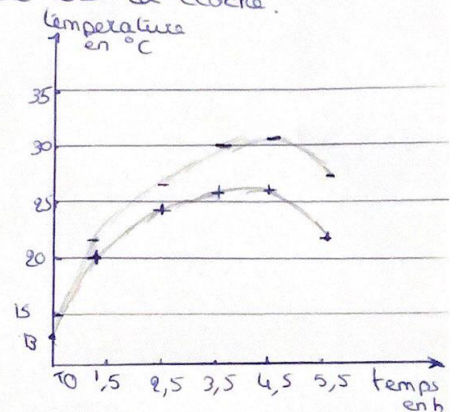 la cloche.
température
en °C
35
30
25
20
15
13
T0 1,5 2,5 3,5 4,5 5,5 temps
en h